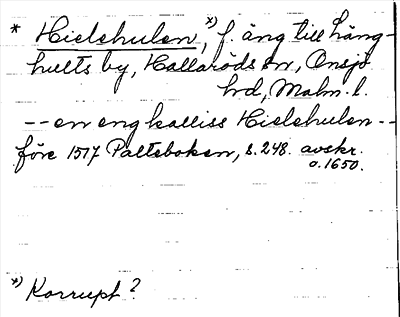 * Hielehulen, *) f. äng till Häng-
hults by, Hallaröds sn, Onsjö
hd, Malm. l.
-- en eng kalliss Hielehulen --
före 1517 Paltsboken, s. 248. avskr.
o. 1650.
*) Korrupt?